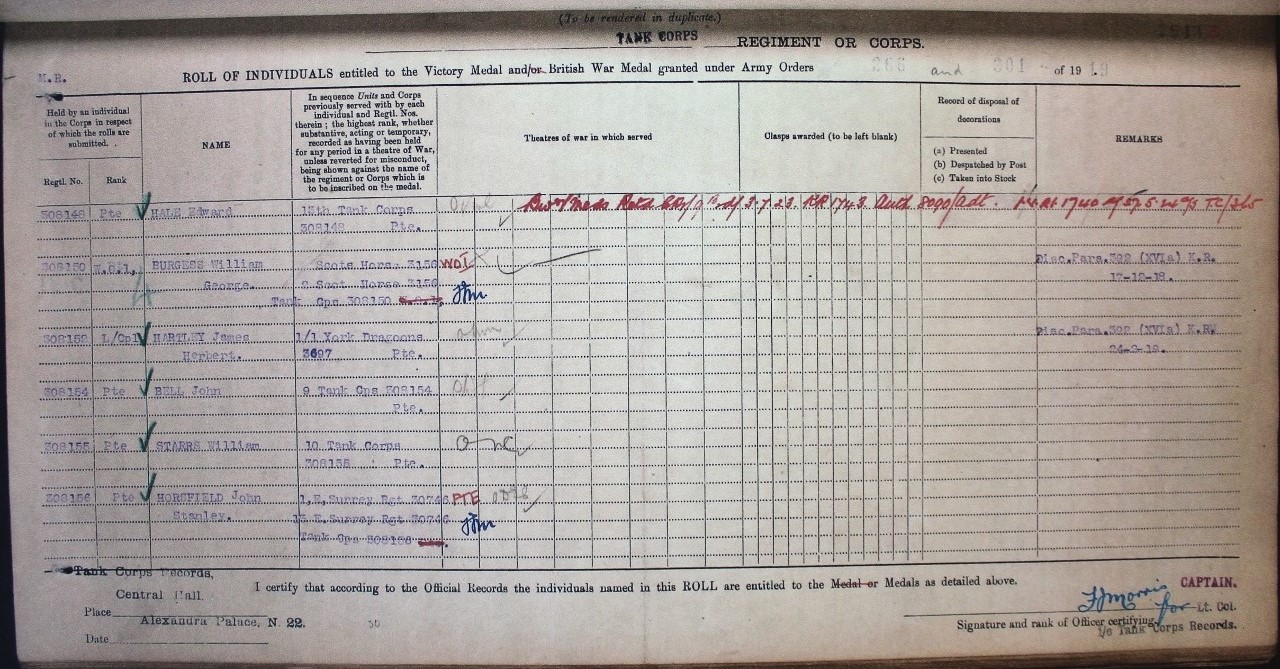 (To be rendered in duplicate.)
TANK CORPS REGIMENT OR CORPS.
M.R.
ROLL OF INDIVIDUALS entitled to the Victory Medal and/or British War Medal granted under Army Orders 266 and 301 of 19 19
Held by an individual in the Corps in respect of which the rolls are submitted.
Regtl. No.
Rank
NAME
In sequence Units and Corps
previously served with by each
individual and Regtl. Nos.
therein; the highest rank, whether
substantive, acting or temporary,
recorded as having been held
for any period in a theatre of War,
unless reverted for misconduct,
being shown against the name of
the regiment or Corps which is
to be inscribed on the medal.
Theatres of war in which served
Clasps awarded (to be left blank)
Record of disposal of
decorations
(a) Presented
(b) Despatched by Post
(c) Taken into Stock
REMARKS
308148 Pte HALE Edward 13th Tank Corps
308148 Pte.
308150 BURGESS William Scots Horse 3156 WOI Disc.Para.392 (XVIa) K.R.
George. 2 Scot Horse 3156 17-12-18.
Tank Cps 308150
308152 L/Cpl HARTLEY James 1/1 York Dragoons Disc.Para.392 (XVIa) K.R.
Herbert. 3697 Pte. 24-2-19.
308154 Pte BELL John 9 Tank Cps 308154
Pte.
308155 Pte STARRS William 10 Tank Corps
308155 Pte.
308156 Pte HORSFIELD John 1,E,Surrey Rgt 30746 PTE
Stanley. 13 E.Surrey Rgt 30746
Tank Cps 308156
Tank Corps Records,
I certify that according to the Official Records the individuals named in this ROLL are entitled to the Medal or Medals as detailed above.
Central Hall.
CAPTAIN.
Place Alexandra Palace, N. 22.
for Lt. Col.
Signature and rank of Officer certifying.
i/c Tank Corps Records.
Date